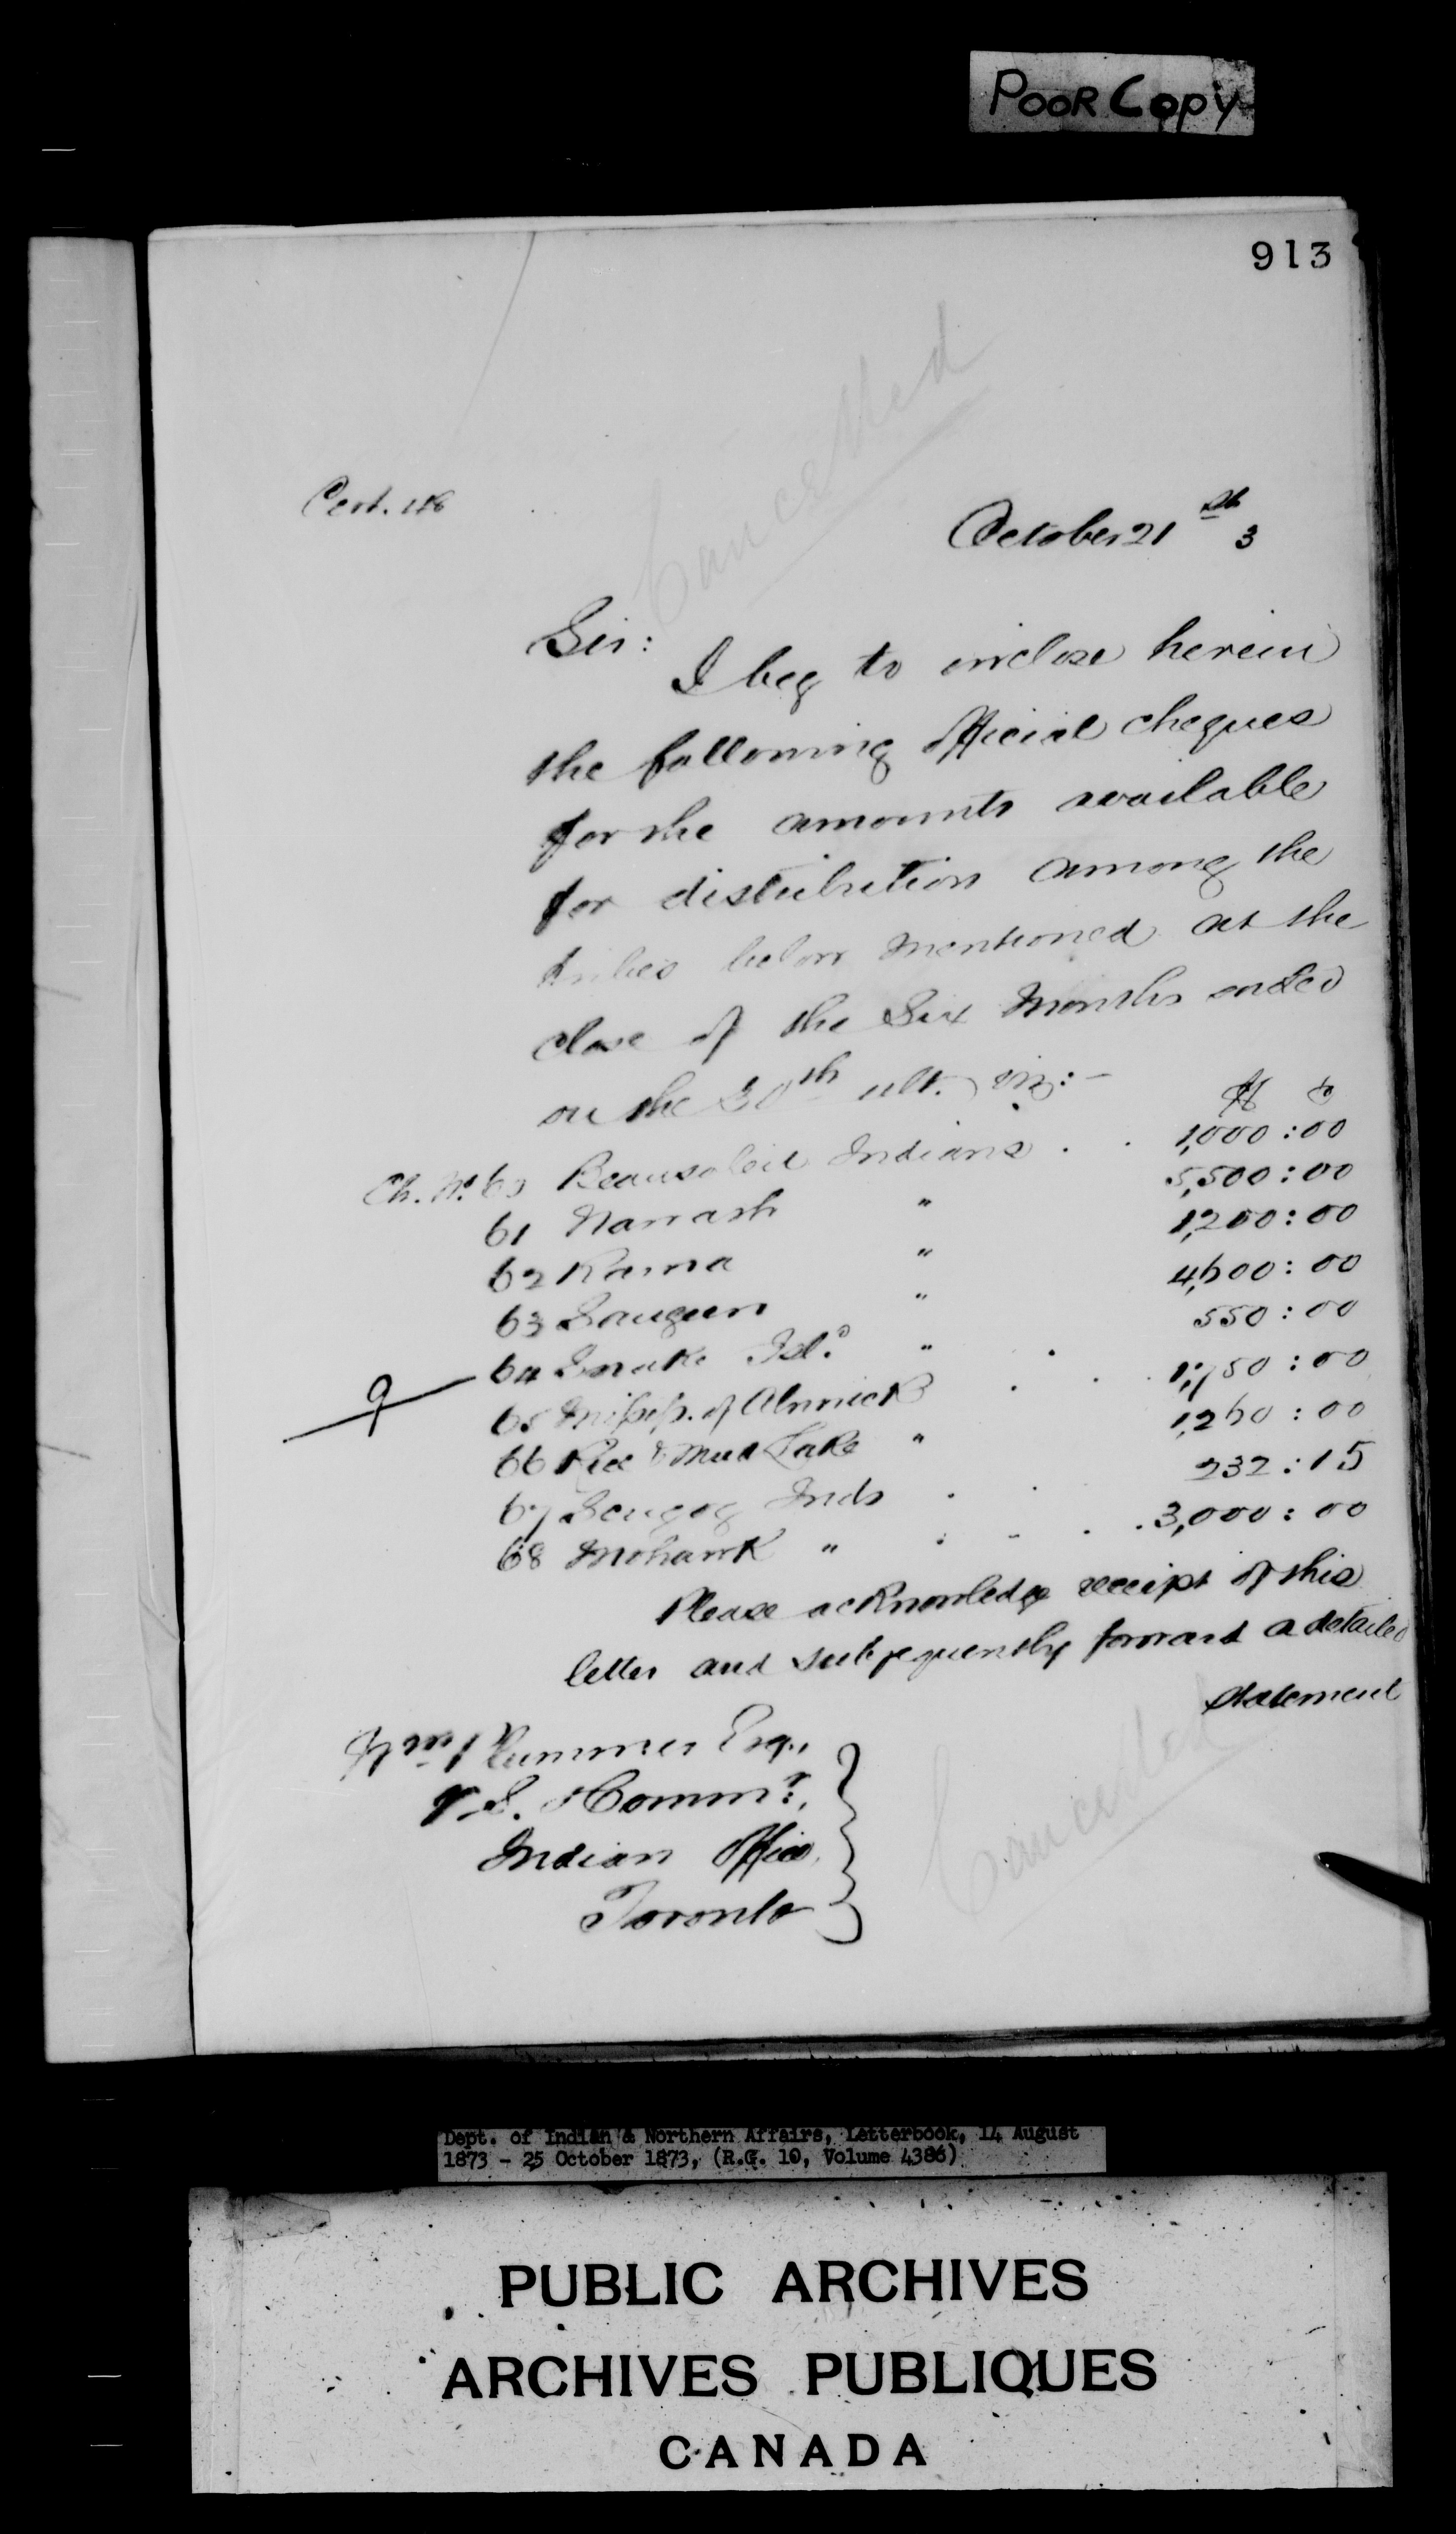 POOR Copy
913
Cancelled
Cert. 116
October 21st 3
Sir:
I beg to inclose herein
the following official cheques
for the amounts available
for distribution among the
tribes below mentioned at the
close of the Six Months ended
on the 30th ult. viz:-
$ c
Ch. No. 60 Beausoleil Indians . . 1,000:00
61 Nawash " 5,500:00
62 Rama " 1,200:00
63 Saugeen " 4,600:00
64 Snake Isl.d " . 550:00
65 Missis. of Alnwick . . . 1,750:00
66 Rice & Mud Lake " 1,260:00
67 Scugog Inds . . 232:15
68 Mohawk " . - . . 3,000:00
9
Please acknowledge receipt of this
letter and subsequently forward a detailed
statement
Wm Plummer Esq.,
V. S. & Commr.,
Indian Office,
Toronto
Cancelled
Dept. of Indian & Northern Affairs, Letterbook, 14 August
1873 - 25 October 1873, (R.G. 10, Volume 4386)
PUBLIC ARCHIVES
ARCHIVES PUBLIQUES
CANADA